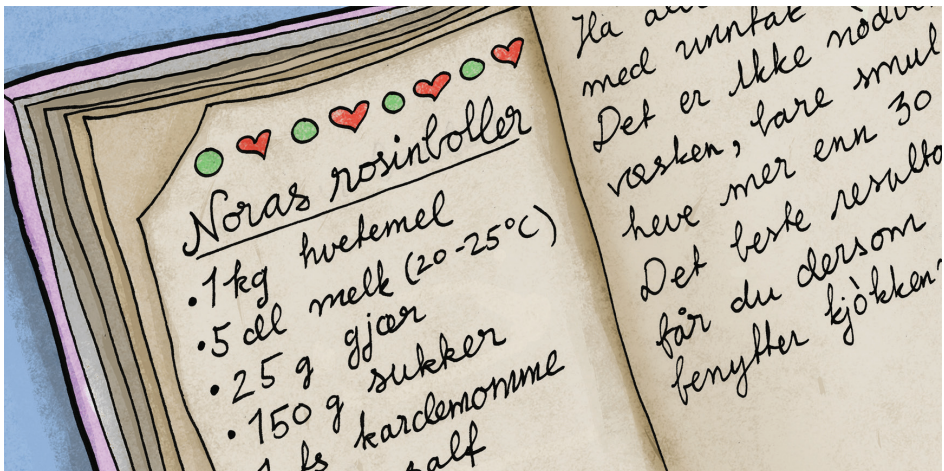 Noras rosinboller
• 1 kg hvetemel
• 5 dl melk (20-25°C)
• 25 g gjær
• 150 g sukker
ts kardemomme
salt
Ha
med unntak
Det er ikke
væsken, bare
heve mer enn 30
Det beste
får du dersom
benytter